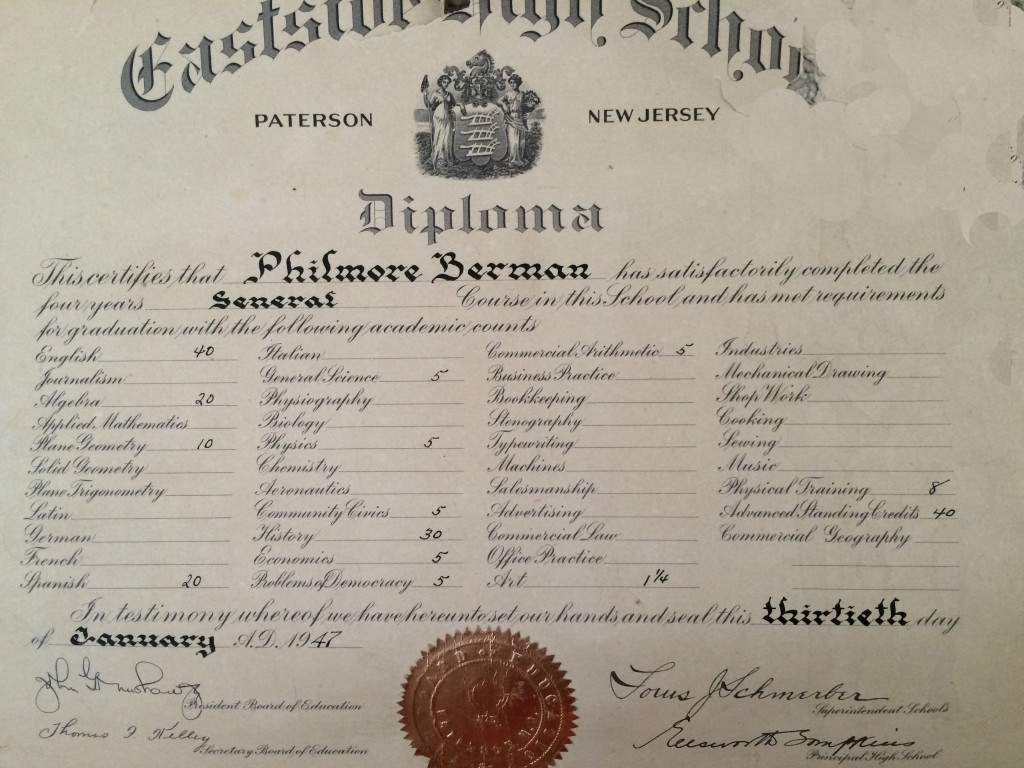 Eastside High School
PATERSON NEW JERSEY
Diploma
This certifies that Philmore Berman has satisfactorily completed the
four years General Course in this School and has met requirements
for graduation with the following academic counts
English 40 Italian Commercial Arithmetic 5 Industries
Journalism General Science 5 Business Practice Mechanical Drawing
Algebra 20 Physiography Bookkeeping Shop Work
Applied Mathematics Biology Stenography Cooking
Plane Geometry 10 Physics 5 Typewriting Sewing
Solid Geometry Chemistry Machines Music
Plane Trigonometry Aeronautics Salesmanship Physical Training 8
Latin Community Civics 5 Advertising Advanced Standing Credits 40
German History 30 Commercial Law Commercial Geography
French Economics 5 Office Practice
Spanish 20 Problems of Democracy 5 Art 1 1/4
In testimony whereof we have hereunto set our hands and seal this thirtieth day
of January A.D. 1947
John President Board of Education Louis J Schmerber Superintendent Schools
Thomas F. Kelley Secretary Board of Education Ellsworth Tompkins Principal High School